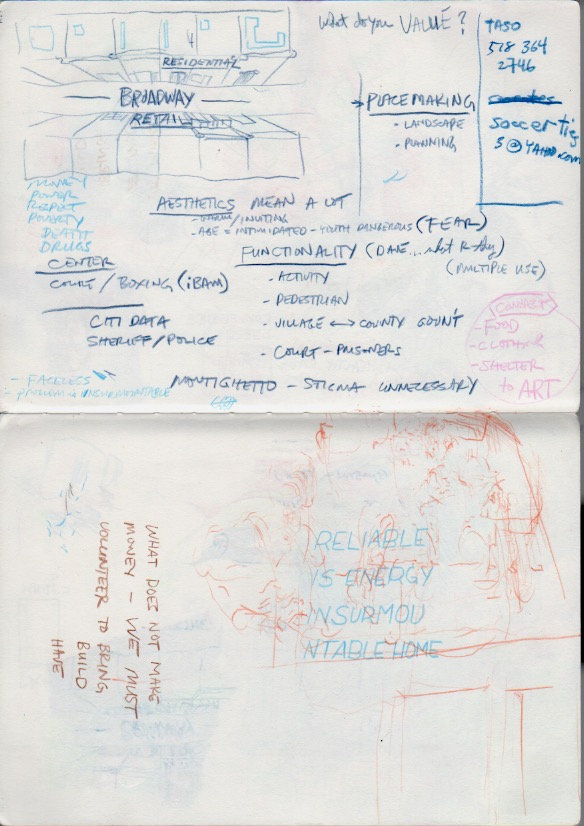 What do you VALUE?
TASO
518 364
2746
soccertig
5@YAHOO.COM
RESIDENTIAL
BROADWAY
RETAIL
PLACEMAKING
- LANDSCAPE
- PLANNING
MONEY
POWER
RESPECT
POVERTY
DEATH
DRUGS
AESTHETICS MEAN A LOT
- WARM/INVITING
- AGE = INTIMIDATED - YOUTH DANGEROUS (FEAR)
CENTER
COURT / BOXING (iBAM)
CITI DATA
SHERIFF/POLICE
FUNCTIONALITY
(MULTIPLE USE)
- ACTIVITY
- PEDESTRIAN
- VILLAGE ↔ COUNTY GOUNT
- COURT - PRISONERS
CONNECT
- FOOD
- CLOTHING
- SHELTER
to ART
- FACELESS
- problem is INSURMOUNTABLE
- STIGMA UNNECESSARY
RELIABLE
IS ENERGY
INSURMOU
NTABLE HOME
WHAT DOES NOT MAKE
MONEY - WE MUST
VOLUNTEER TO BRING
BUILD
HAVE